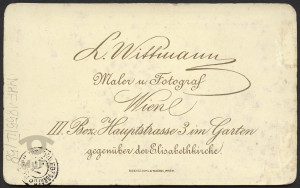 L. Wittmann
Maler u. Fotograf
Wien
III. Bez. Hauptstrasse 3 im Garten
gegenüber der Elisabethkirche